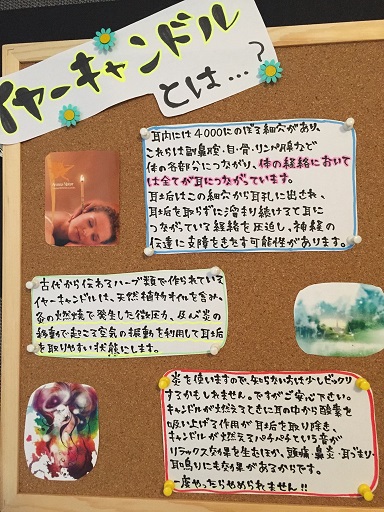 イヤーキャンドル
とは…?
耳内には4000にのぼる細穴があり、
これらは副鼻腔・目・骨・リンパ腺など
体の各部分につながり、体の経絡において
は全てが耳につながっています。
耳垢はこの細穴から耳孔に出され、
耳垢を取らずに溜まり続けると耳に
つながっている経絡を圧迫し、神経の
伝達に支障をきたす可能性があります。
古代から伝わるハーブ類で作られている
イヤーキャンドルは、天然植物オイルを含み、
灸の燃焼で発生した微圧力、及び炎の
移動で起こる空気の振動を利用して耳垢
を取りやすい状態にします。
炎を使いますので、知らない方は少しビックリ
するかもしれません。ですがご安心下さい。
キャンドルが燃えるときに耳の中から酸素を
吸い上げる作用が耳垢を取り除き、
キャンドルが燃えるパチパチという音が
リラックス効果を生むほか、頭痛・鼻炎・耳づまり・
耳鳴りにも効果があるからです。
一度やったらやめられません!!